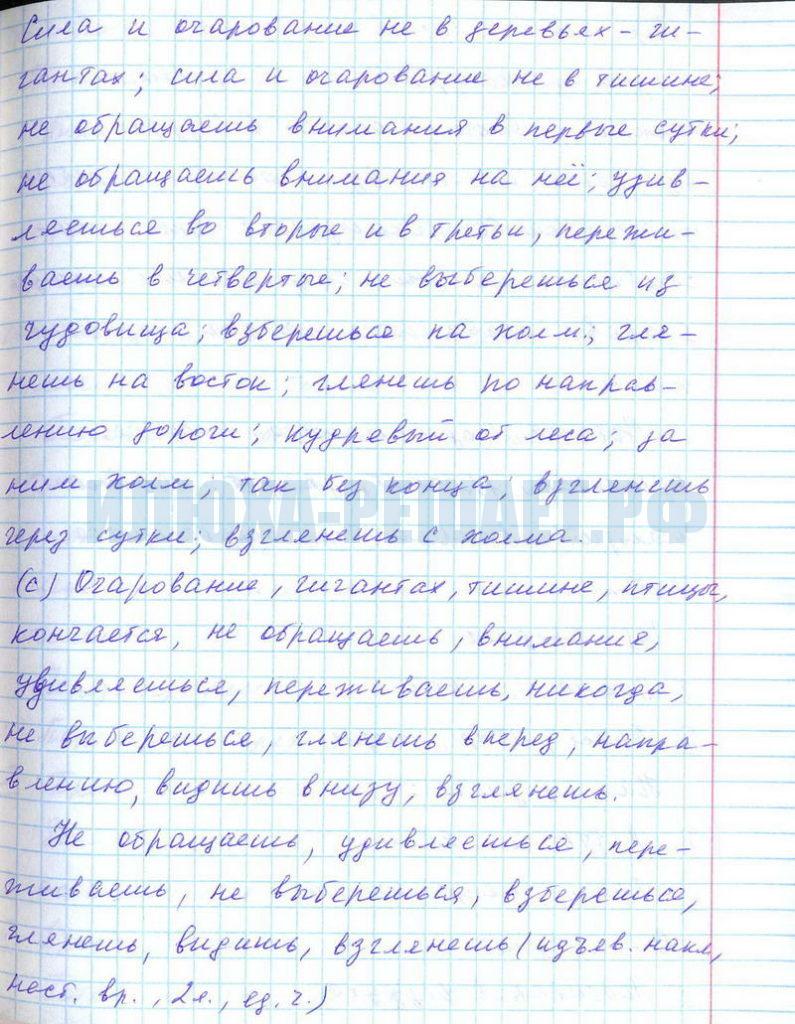 Сила и очарование не в деревьях-ги-
гантах; сила и очарование не в тишине;
не обращаешь внимания в первые сутки;
не обращаешь внимания на неё; удив-
ляешься во вторые и в третьи, пережи-
ваешь в четвертые; не выберешься из
чудовища; взберешься на холм; гля-
нешь на восток; глянешь по направ-
лению дороги; кудрявый от леса; за
ним холм; так без конца; взглянешь
через сутки; взглянешь с холма.
ИЛЮХА-РЕШАЕТ.РФ
(с) Очарование, гигантах, тишине, птицы,
кончается, не обращаешь, внимания,
удивляешься, переживаешь, никогда,
не выберешься, глянешь вперед, напра-
влению, видишь внизу, взглянешь.
Не обращаешь, удивляешься, пере-
живаешь, не выберешься, взберешься,
глянешь, видишь, взглянешь (изъяв. накл,
наст. вр., 2л., ед. ч.)